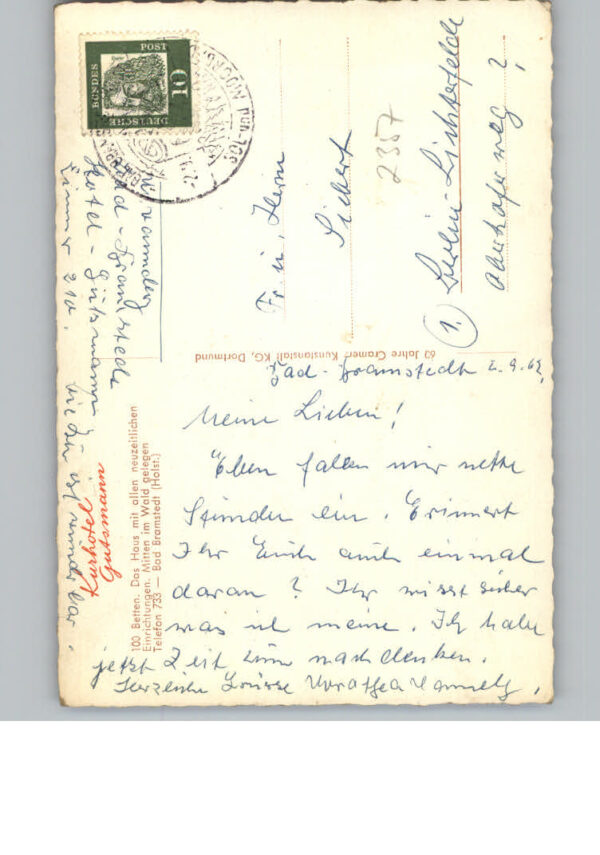 Bad-Bramstedt 2.9.62.
Meine Lieben!
Eben fallen mir nette
Stunden ein. Erinnert
Ihr Euch auch einmal
daran? Ihr wisst sicher
was ich meine. Ich habe
jetzt Zeit zum nachdenken.
Herzliche Grüsse Dorothea
Kurhotel
Gutsmann
100 Betten. Das Haus mit allen neuzeitlichen
Einrichtungen. Mitten im Wald gelegen
Telefon 733 — Bad Bramstedt (Holst.)
63 Jahre Cramer, Kunstanstalt KG, Dortmund
Bad-Bramstedt
Hotel-Gutsmann
Zimmer 210.
DEUTSCHE
BUNDES
POST
10
SOL- UND MOORBAD
Fr. u. Herrn
Siebert
2357
(1.) Berlin-Lichterfelde